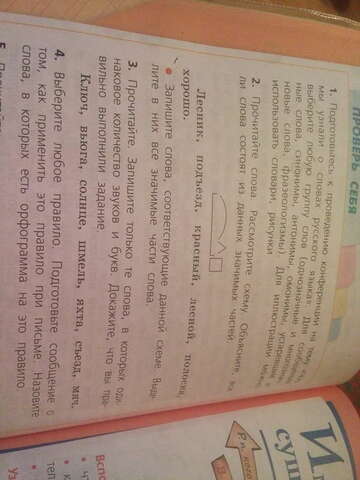 ПРОВЕРЬ СЕБЯ
1. Подготовьтесь к проведению конференции на тему «Что
мы узнали о словах русского языка». Для сообщения
выберите любую группу слов (однозначные и многознач-
ные слова, синонимы, антонимы, омонимы, устаревшие и
новые слова, фразеологизмы). Для иллюстрации можно
использовать словари, рисунки
2. Прочитайте слова. Рассмотрите схему. Объясните, все
ли слова состоят из данных значимых частей.
Лесник, подъезд, красный, лесной, полоска,
хорошо.
● Запишите слова, соответствующие данной схеме. Выде-
лите в них все значимые части слова.
3. Прочитайте. Запишите только те слова, в которых оди-
наковое количество звуков и букв. Докажите, что вы пра-
вильно выполнили задание.
Ключ, вьюга, солнце, шмель, яхта, съезд, мяч.
4. Выберите любое правило. Подготовьте сообщение о
том, как применить это правило при письме. Назовите
слова, в которых есть орфограмма на это правило
5.
Р.п. кого
Вспо